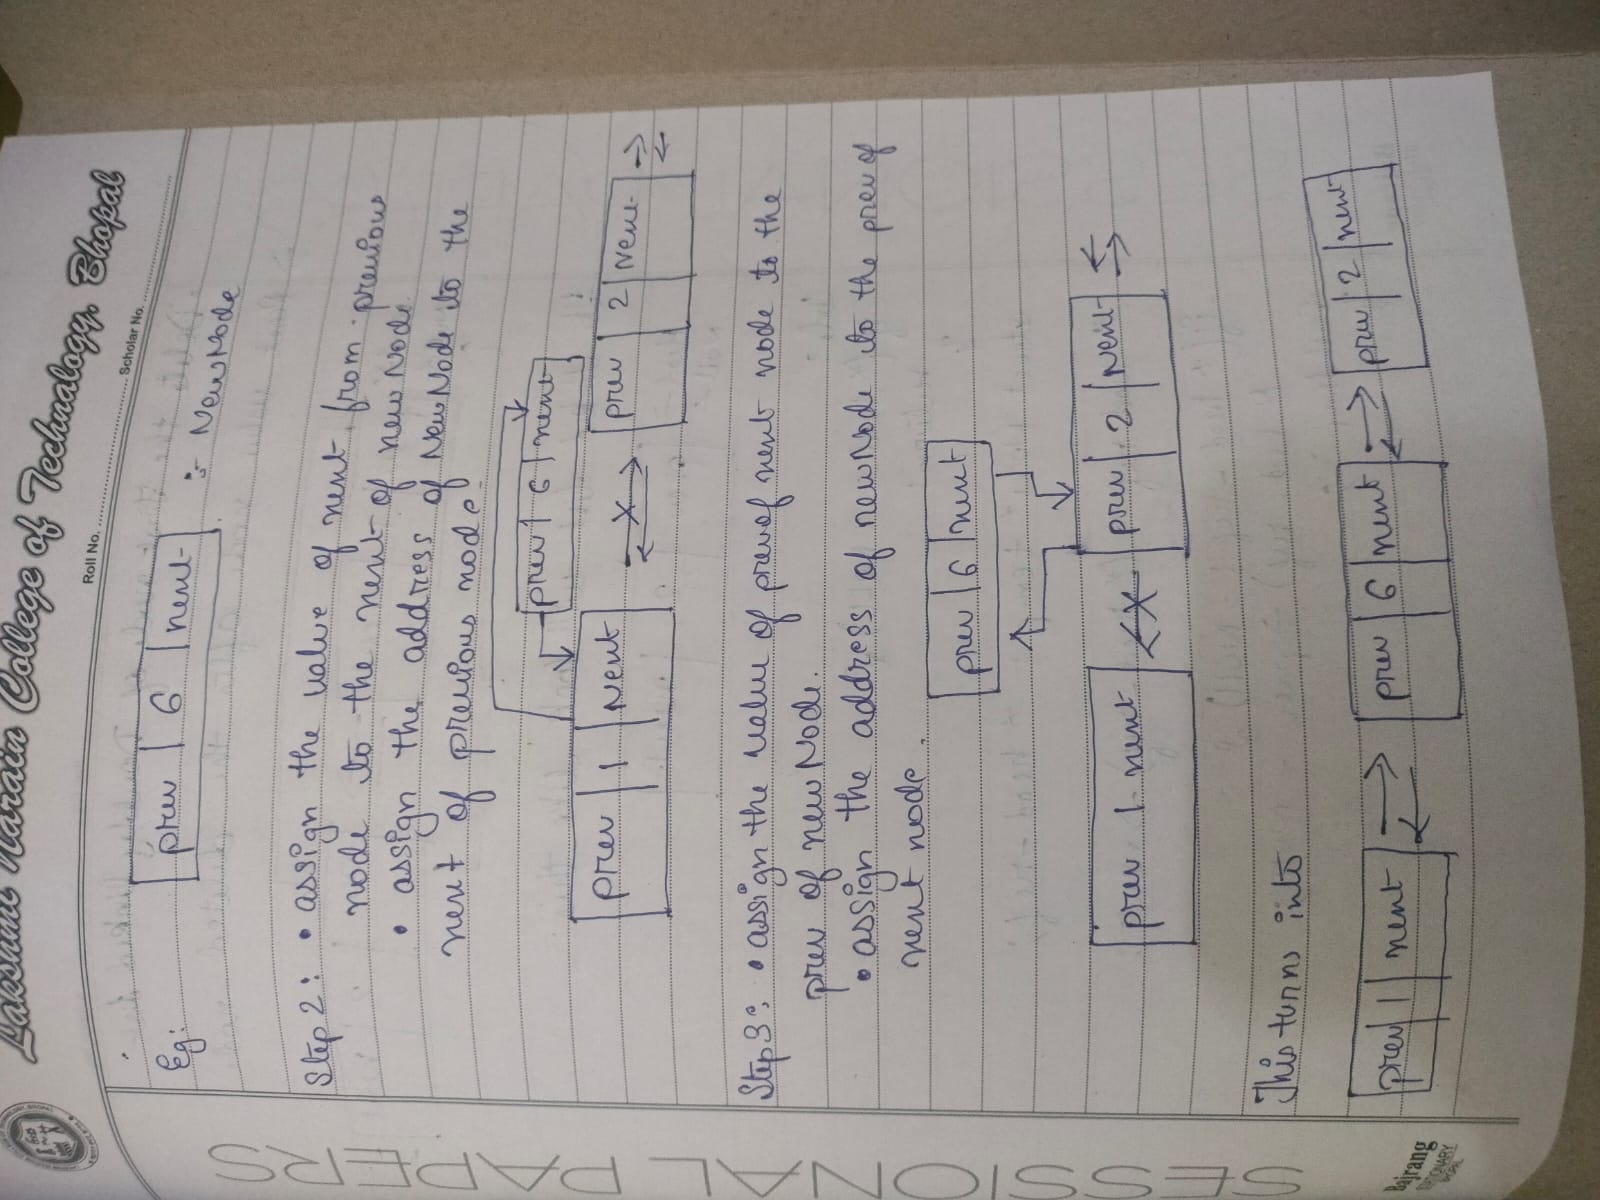 Lakshmi Narain College of Technalogy, Bhopal
Roll No. ........................ Scholar No. ........................
SESSIONAL PAPERS
Eg: prev 6 next :- NewNode
Step 2: • assign the value of next from previous
node to the next of new Node.
• assign the address of NewNode to the
next of previous node.
prev 6 next
prev 1 Next X prev 2 Next
Step 3: • assign the value of prev of next node to the
prev of new Node.
• assign the address of newNode to the prev of
next node.
prev 6 next
prev 1 next X prev 2 Next
This turns into
prev 1 next prev 6 next prev 2 next
Bajrang
STATIONARY
BHOPAL